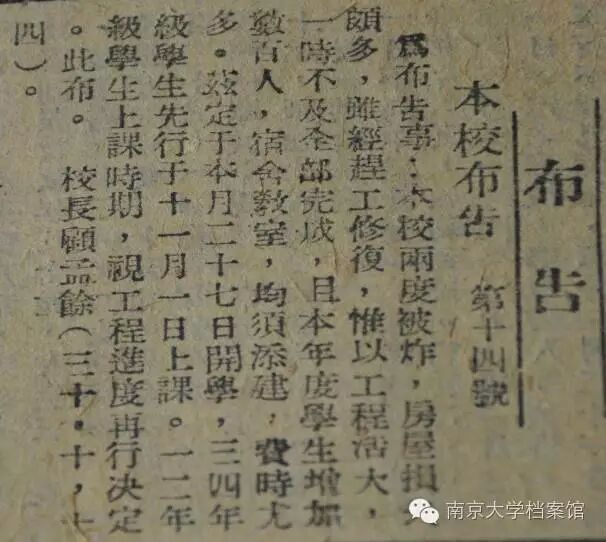 布告
本校布告 第十四號
爲布告事：本校兩度被炸，房屋損
頗多，雖經趕工修復，惟以工程浩大，
一時不及全部完成，且本年度學生增加
數百人，宿舍敎室，均須添建，費時尤
多。茲定于本月二十七日開學，三四年
級學生先行于十一月一日上課。一二年
級學生上課時期，視工程進度再行決定
。此布。 校長顧孟餘（三十·十，十
四）。
南京大学档案馆